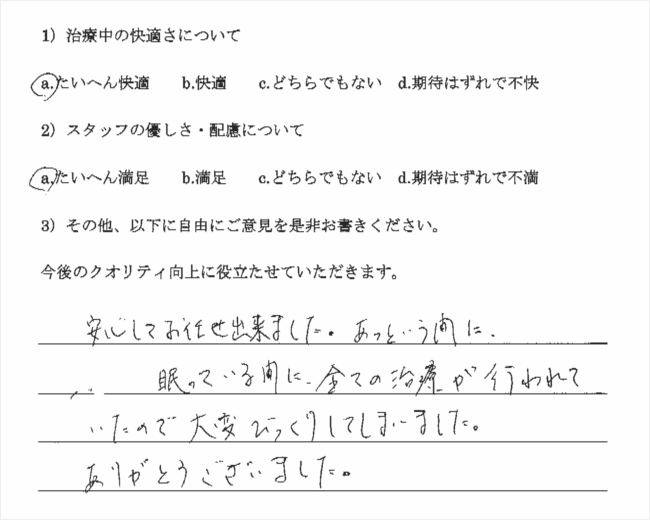 1）治療中の快適さについて
a.たいへん快適　b.快適　c.どちらでもない　d.期待はずれで不快
2）スタッフの優しさ・配慮について
a.たいへん満足　b.満足　c.どちらでもない　d.期待はずれで不満
3）その他、以下に自由にご意見を是非お書きください。
今後のクオリティ向上に役立たせていただきます。
安心してお任せ出来ました。あっという間に、
眠っている間に、全ての治療が行われて
いたので大変びっくりしてしまいました。
ありがとうございました。